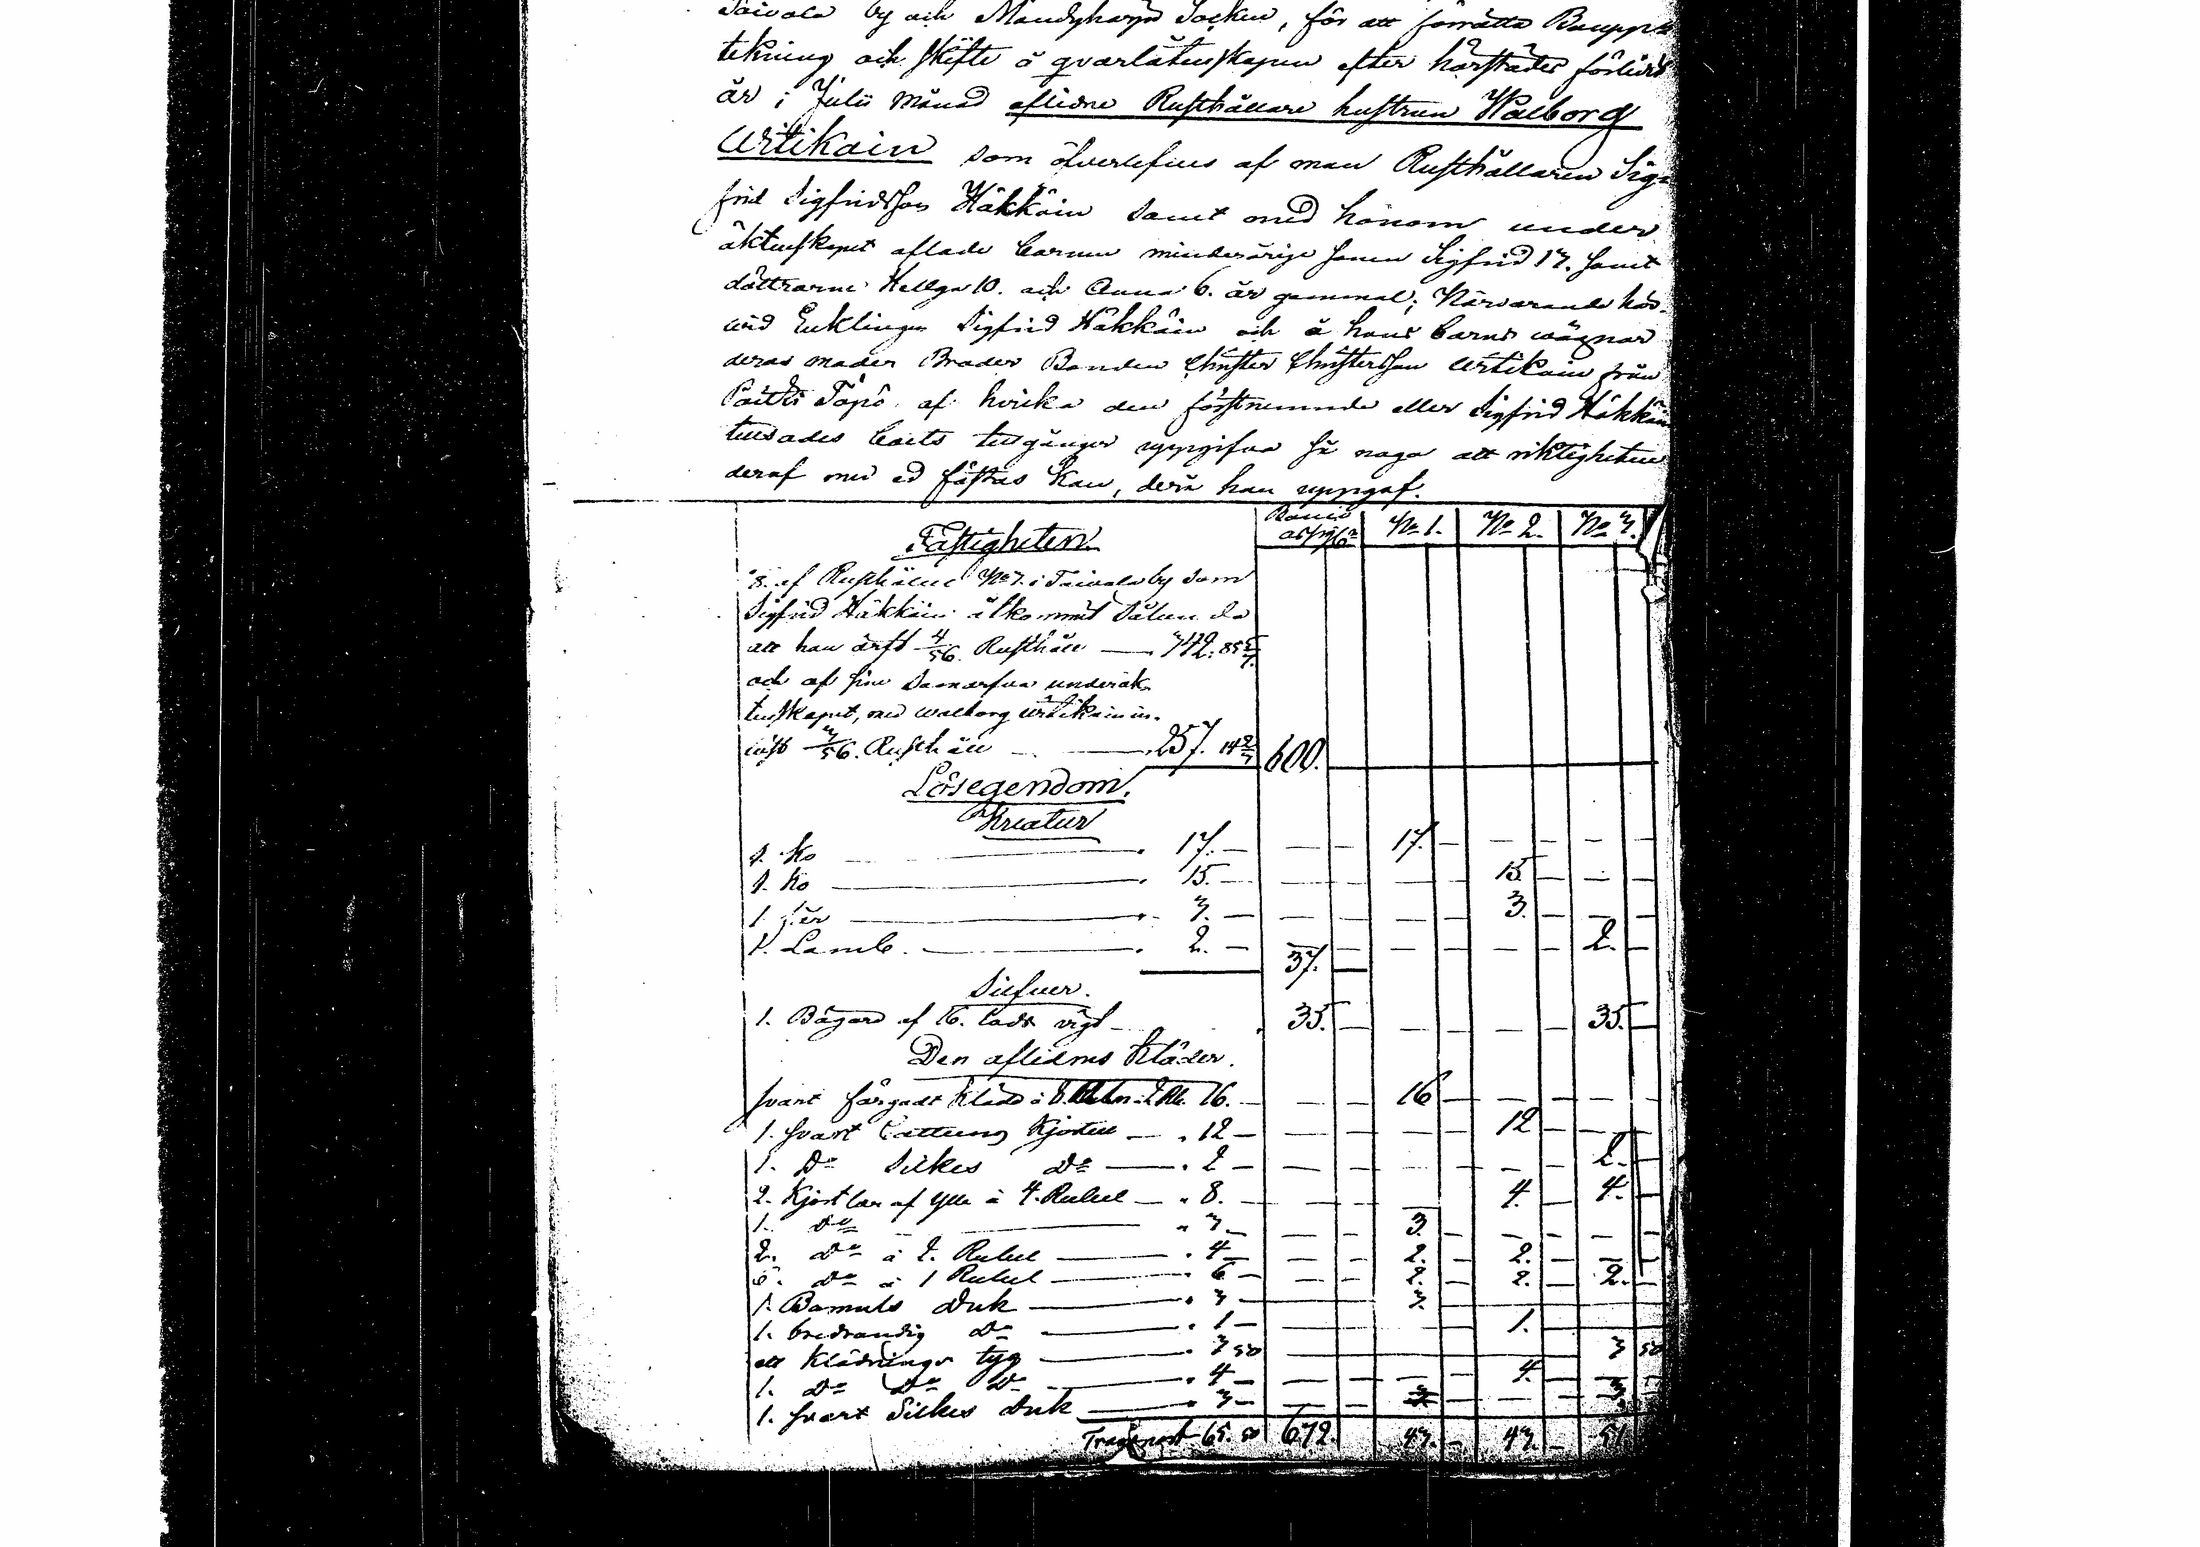 Taivala by och Mändyharju Socken, för att förrätta Bouppe
tekning och skifte å qvarlåtenskapen efter härstädes förlidit
år i Julii Månad aflidne Rusthållare hustrun Walborg
Urtikain som öfverlefves af man Rusthållaren Sig=
frid Sigfridsson Häkkäin samt med honom under
äktenskapet aflade barnen minderårige sonen Sigfrid 17. samt
döttrarne Hellga 10. och Anna 6. år gammal; Närvarande här-
vid Enklingen Sigfrid Häkkäin och å hans barns wägnar
deras moder Broder Bonden Christer Christersson Urtikain från
af hvilka den förstnemnde eller Sigfrid Häkkäin
tillsades boets tillgångar uppgifva så noga att riktigheten
deraf med ed fästas kan, dera han uppgaf.
Banco assig No 1. No 2. No 3.
Fastigheten
8. af Rusthållet No 7. i Taivala by som
Sigfrid Häkkäin åtkommit sålunda
att han ärft 4/56 Rusthåll — 342. 85 5/7.
och af sine samarfvar under äk
tenskapet, med Walborg Urtikain in-
löst 3/56. Rusthåll — 257. 14 2/7 600.
Lösegendom.
Kreatur
1. Ko — 17. — 17. —
1. Ko — 15. — 15 —
1. får — 3. — 3. —
1. Lamb. — 2. — 37. — 2. —
Silfver.
1. Bägare af 16. lods vigt — 35. — 35. —
Den aflidnes Kläder.
svart färgadt Kläde 16. — 16 —
1. svart Cattuns Kjortell — 12 — 12 —
1. Do Silkes Do — 2 — 2. —
2. Kjortlar af ylle à 4. Rubel — 8. — 4. — 4. —
1. Do — 3 — 3. —
2. Do à 2. Rubel — 4 — 2. — 2. —
6. Do à 1 Rubel — 6 — 2. — 2. — 2. —
1. Bomuls duk — 3 — 3.
1. bredrandig Do — 1 — 1.
ett Klädnings tyg — 3 50 3 50
1. Do Do Do — 4 — 4. —
1. svart Silkes duk — 3 — 3.
Transport 65. 50 672. 43. — 43. — 51